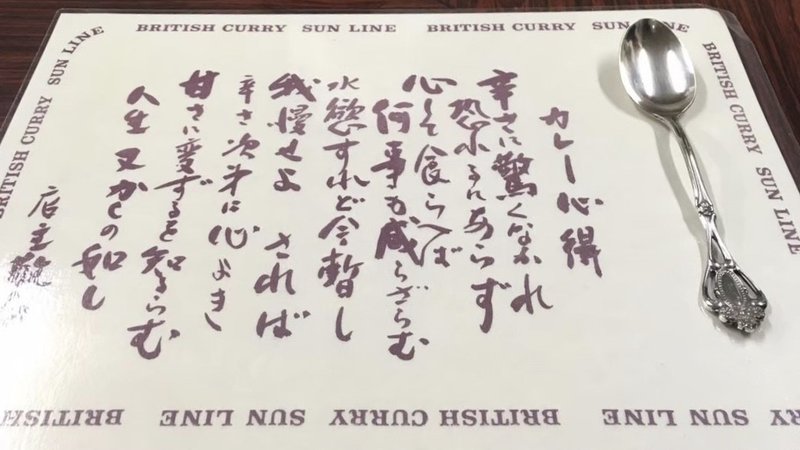 BRITISH CURRY SUN LINE BRITISH CURRY SUN LINE
BRITISH CURRY SUN LINE
BRITISH CURRY SUN LINE
カレー心得
辛さに驚くなかれ
恐れるにあらず
心して食らへば
何事も成らざらむ
水慾すれど今暫し
我慢せよ されば
辛さ次第に心よき
甘さに変ずるを知るらむ
人生又かくの如し
店主
BRITISH CURRY SUN LINE BRITISH CURRY SUN LINE BRITISH